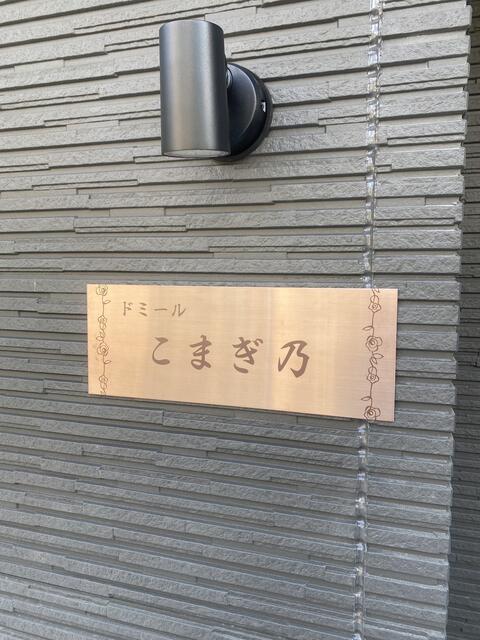 ドミール
こまぎ乃